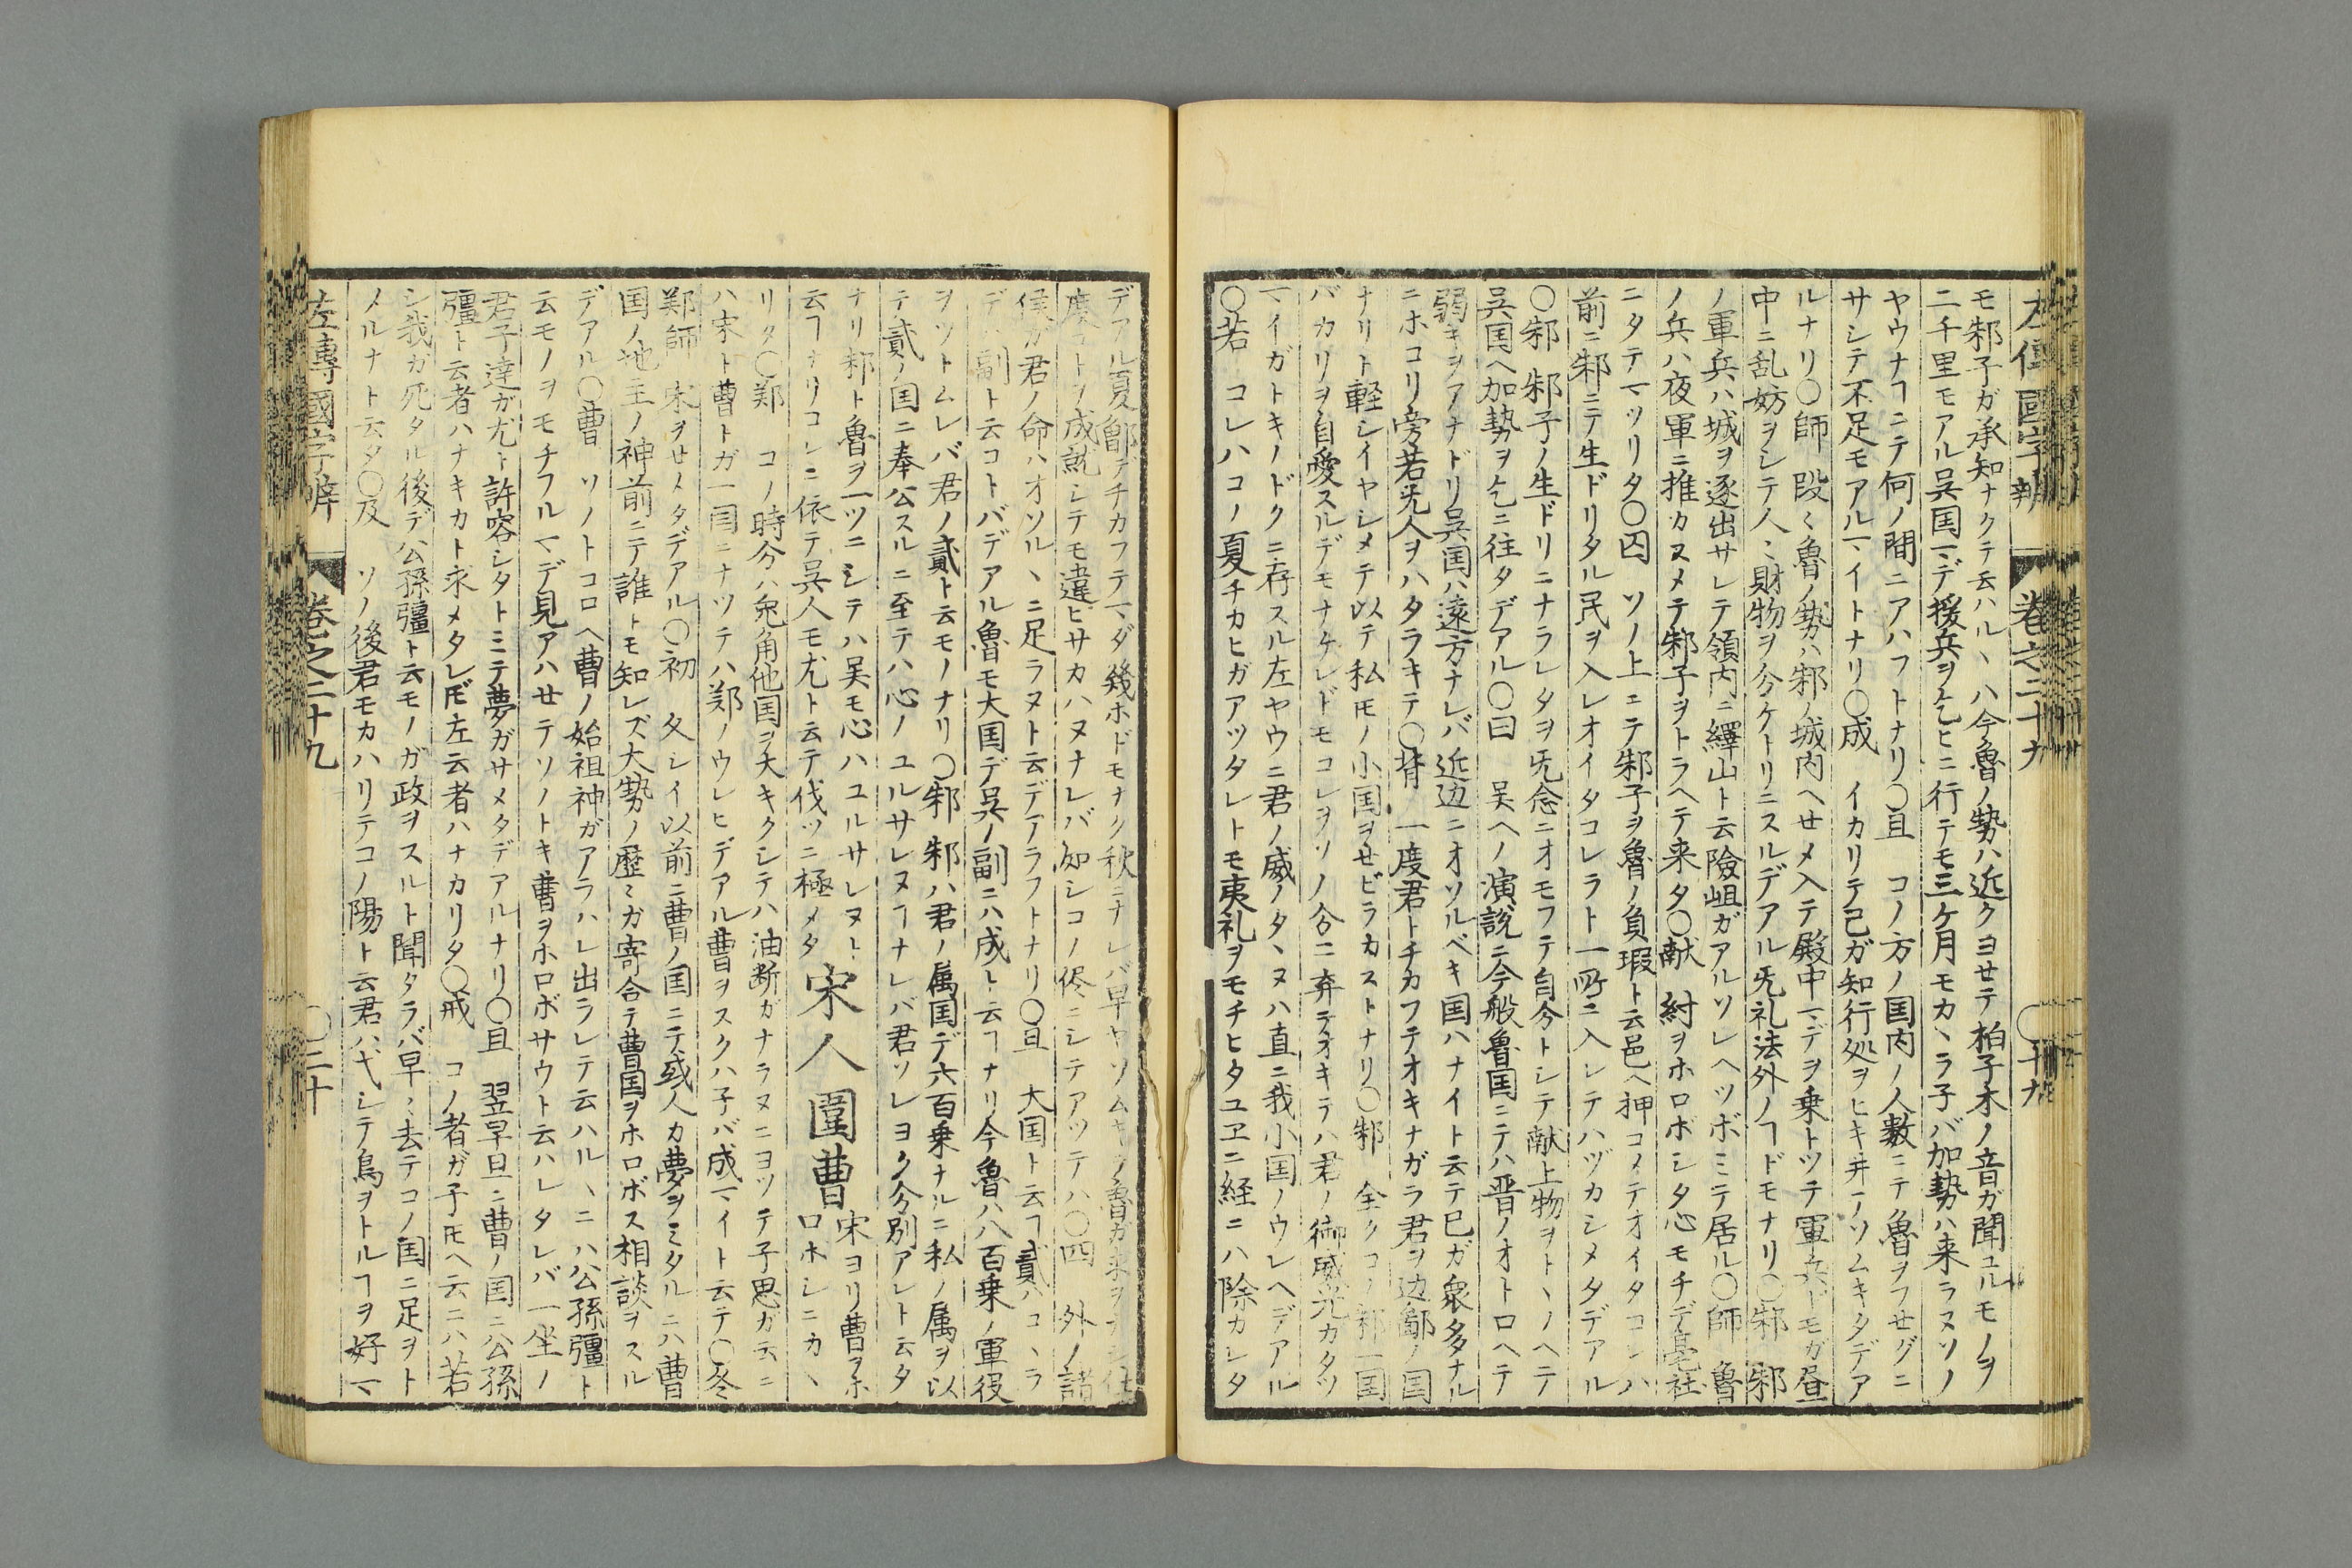 左傳國字辨 巻之二十九 〇十九
モ邾子ガ承知ナクテ云ハルヽハ今魯ノ勢ハ近クヨセテ柏子木ノ音ガ聞ユルモノヲ
二千里モアル呉国マデ援兵ヲ乞ヒニ行テモ三ケ月モカヽラ子バ加勢ハ来ラヌソノ
ヤウナヿニテ何ノ間ニアハフトナリ〇且 コノ方ノ国内ノ人数ニテ魯ヲフセグニ
サシテ不足モアルマイトナリ〇成 イカリテ己ガ知行処ヲヒキ井テソムキタデア
ルナリ〇師 段々魯ノ勢ハ邾ノ城内ヘセメ入テ殿中マデヲ乗トツテ軍兵ドモガ昼
中ニ乱妨ヲシテ人々財物ヲ分ケトリニスルデアル旡礼法外ノヿドモナリ〇邾 邾
ノ軍兵ハ城ヲ逐出サレテ領内ニ繹山ト云険岨ガアルソレヘツボミテ居ル〇師 魯
ノ兵ハ夜軍ニ推カスメテ邾子ヲトラヘテ来タ〇献 紂ヲホロボシタ心モチデ亳社
ニタテマツリタ〇囚 ソノ上ニテ邾子ヲ魯ノ負瑕ト云邑ヘ押コメテオイタコレハ
前ニ邾ニテ生ドリタル民ヲ入レオイタコレラト一所ニ入レテハヅカシメタデアル
〇邾 邾子ノ生ドリニナラレタヲ旡念ニオモフテ自分トシテ献上物ヲトヽノヘテ
呉国ヘ加勢ヲ乞ニ往タデアル〇曰 呉ヘノ演説ニ今般魯国ニテハ晋ノオトロヘテ
弱キヲアナドリ呉国ハ遠方ナレバ近辺ニオソルベキ国ハナイト云テ己ガ衆多ナル
ニホコリ旁若旡人ヲハタラキテ〇背 一度君トチカフテオキナガラ君ヲ辺鄙ノ国
ナリト軽シイヤシメテ以テ私𪜈ノ小国ヲセビラカストナリ〇邾 全クコノ邾一国
バカリヲ自愛スルデモナケレドモコレヲソノ分ニ弃テオキテハ君ノ御威光カタツ
マイガトキノドクニ存スル左ヤウニ君ノ威ノタヽヌハ直ニ我小国ノウレヘデアル
〇若 コレハコノ夏チカヒガアツタレトモ夷礼ヲモチヒタユヱニ経ニハ除カレタ
デアル夏鄫デチカフテマダ幾ホドモナク秋ニナレバ早ヤソムキテ魯ガ来ヲナシ仕
度コトヲ成就シテモ違ヒサカハヌナレバ如シコノ侭ニシテアツテハ〇四 外ノ諸
侯ガ君ノ命ハオソルヽニ足ラヌト云デアラフトナリ〇且 大国ト云ヿ貳ハコヽラ
デハ副ト云コトバデアル魯モ大国デ呉ノ副ニハ成ト云ヿナリ今魯ハ八百乗ノ軍役
ヲツトムレバ君ノ貳ト云モノナリ〇邾 邾ハ君ノ属国デ六百乗ナルニ私ノ属ヲ以
テ貳ノ国ニ奉公スルニ至テハ心ノユルサレヌヿナレバ君ソレヨク分別アレト云タ
ナリ邾ト魯ヲ一ツニシテハ呉モ心ハユルサレヌト
云ヿナリコレニ依テ呉人モ尤ト云テ伐ツニ極メタ
宋人圍曹
宋ヨリ曹ヲホ
ロホシニカヽ
リタ〇鄭 コノ時分ハ兎角他国ヲ大キクシテハ油断ガナラヌニヨツテ子思ガ云ニ
ハ宋ト曹トガ一国ニナツテハ鄭ノウレヒデアル曹ヲスクハ子バ成マイト云テ〇冬
鄭師 宋ヲセメタデアル〇初 久シイ以前ニ曹ノ国ニテ或人カ夢ヲミタルニハ曹
国ノ地主ノ神前ニテ誰トモ知レズ大勢ノ歴々ガ寄合テ曹国ヲホロボス相談ヲスル
デアル〇曹 ソノトコロヘ曹ノ始祖神ガアラハレ出ラレテ云ハルヽニハ公孫彊ト
云モノヲモチフルマデ見アハセテソノトキ曹ヲホロボサウト云ハレタレバ一坐ノ
君子達ガ尤ト許容シタトミテ夢ガサメタデアルナリ〇且 翌早旦ニ曹ノ国ニ公孫
彊ト云者ハナキカト求メタレ𪜈左云者ハナカリタ〇戒 コノ者ガ子𪜈ヘ云ニハ若
シ我ガ死タル後デ公孫彊ト云モノガ政ヲスルト聞タラバ早々去テコノ国ニ足ヲト
メルナト云タ〇及 ソノ後君モカハリテコノ陽ト云君ハ弋シテ鳥ヲトルヿヲ好マ
左傳國字辨 巻之二十九 〇二十